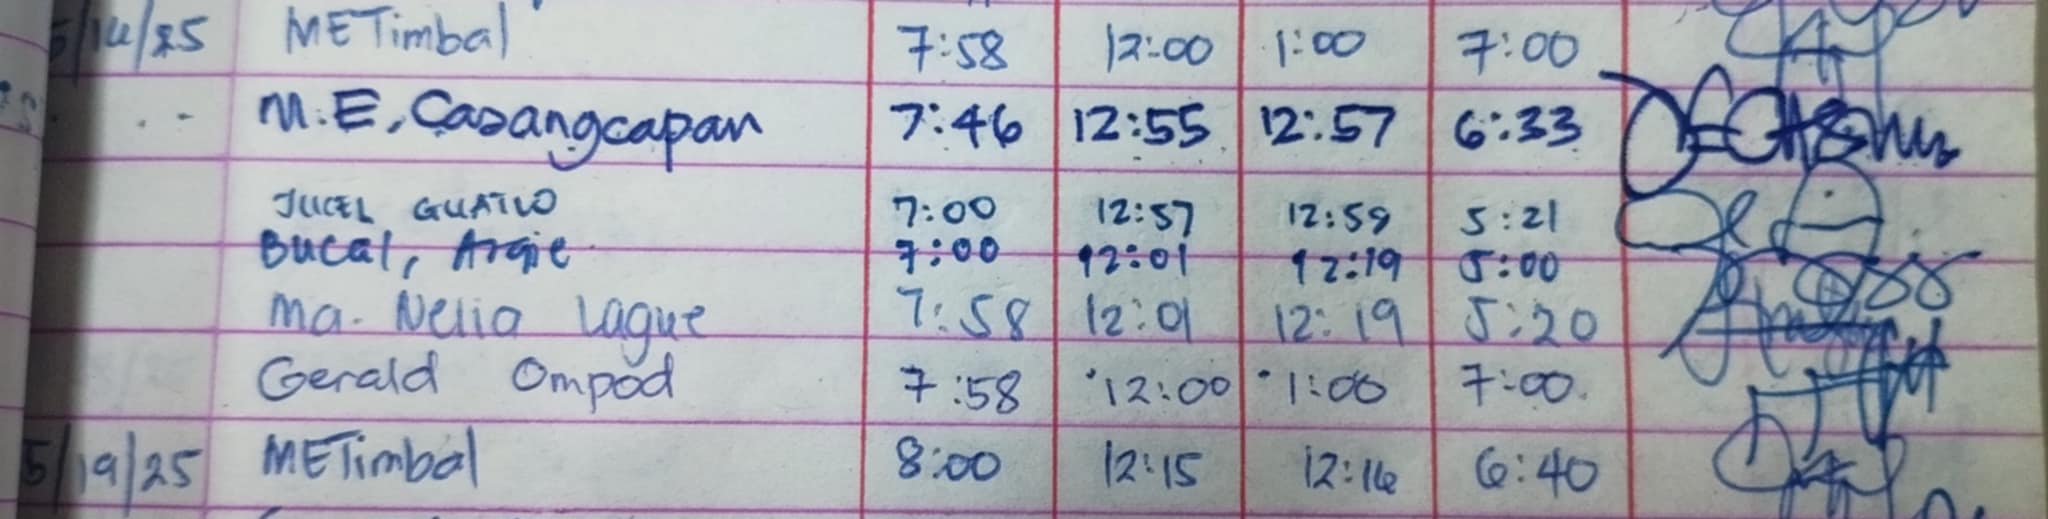 5/14/25 METimbal 7:58 12:00 1:00 7:00
M.E. Casangcapan 7:46 12:55 12:57 6:33
JUCEL GUATLO 7:00 12:57 12:59 5:21
Bucal, Argie 7:00 12:01 12:19 5:00
Ma. Nelia Lague 7:58 12:01 12:19 5:20
Gerald Ompod 7:58 12:00 1:00 7:00
5/19/25 METimbal 8:00 12:15 12:16 6:40